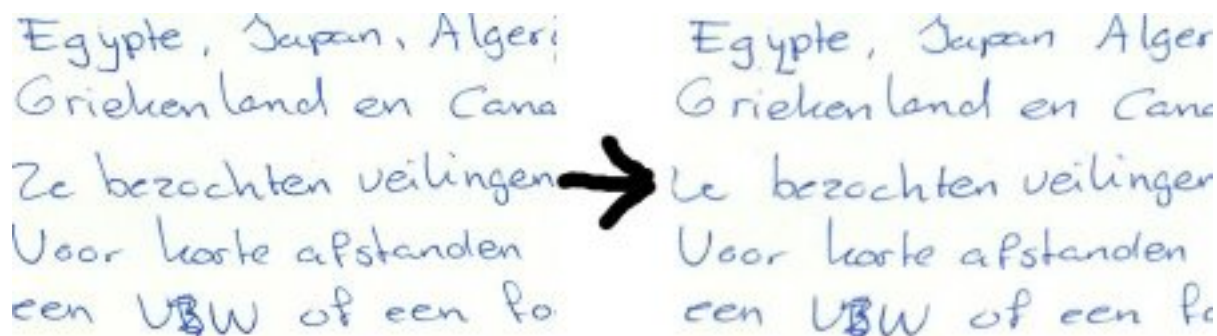 Egypte, Japan, Algeri
Griekenland en Cana
Ze bezochten veilingen
Voor korte afstanden
een VBW of een fo
Egypte, Japan Alger
Griekenland en Cana
Ze bezochten veilingen
Voor korte afstanden
een VBW of een fo